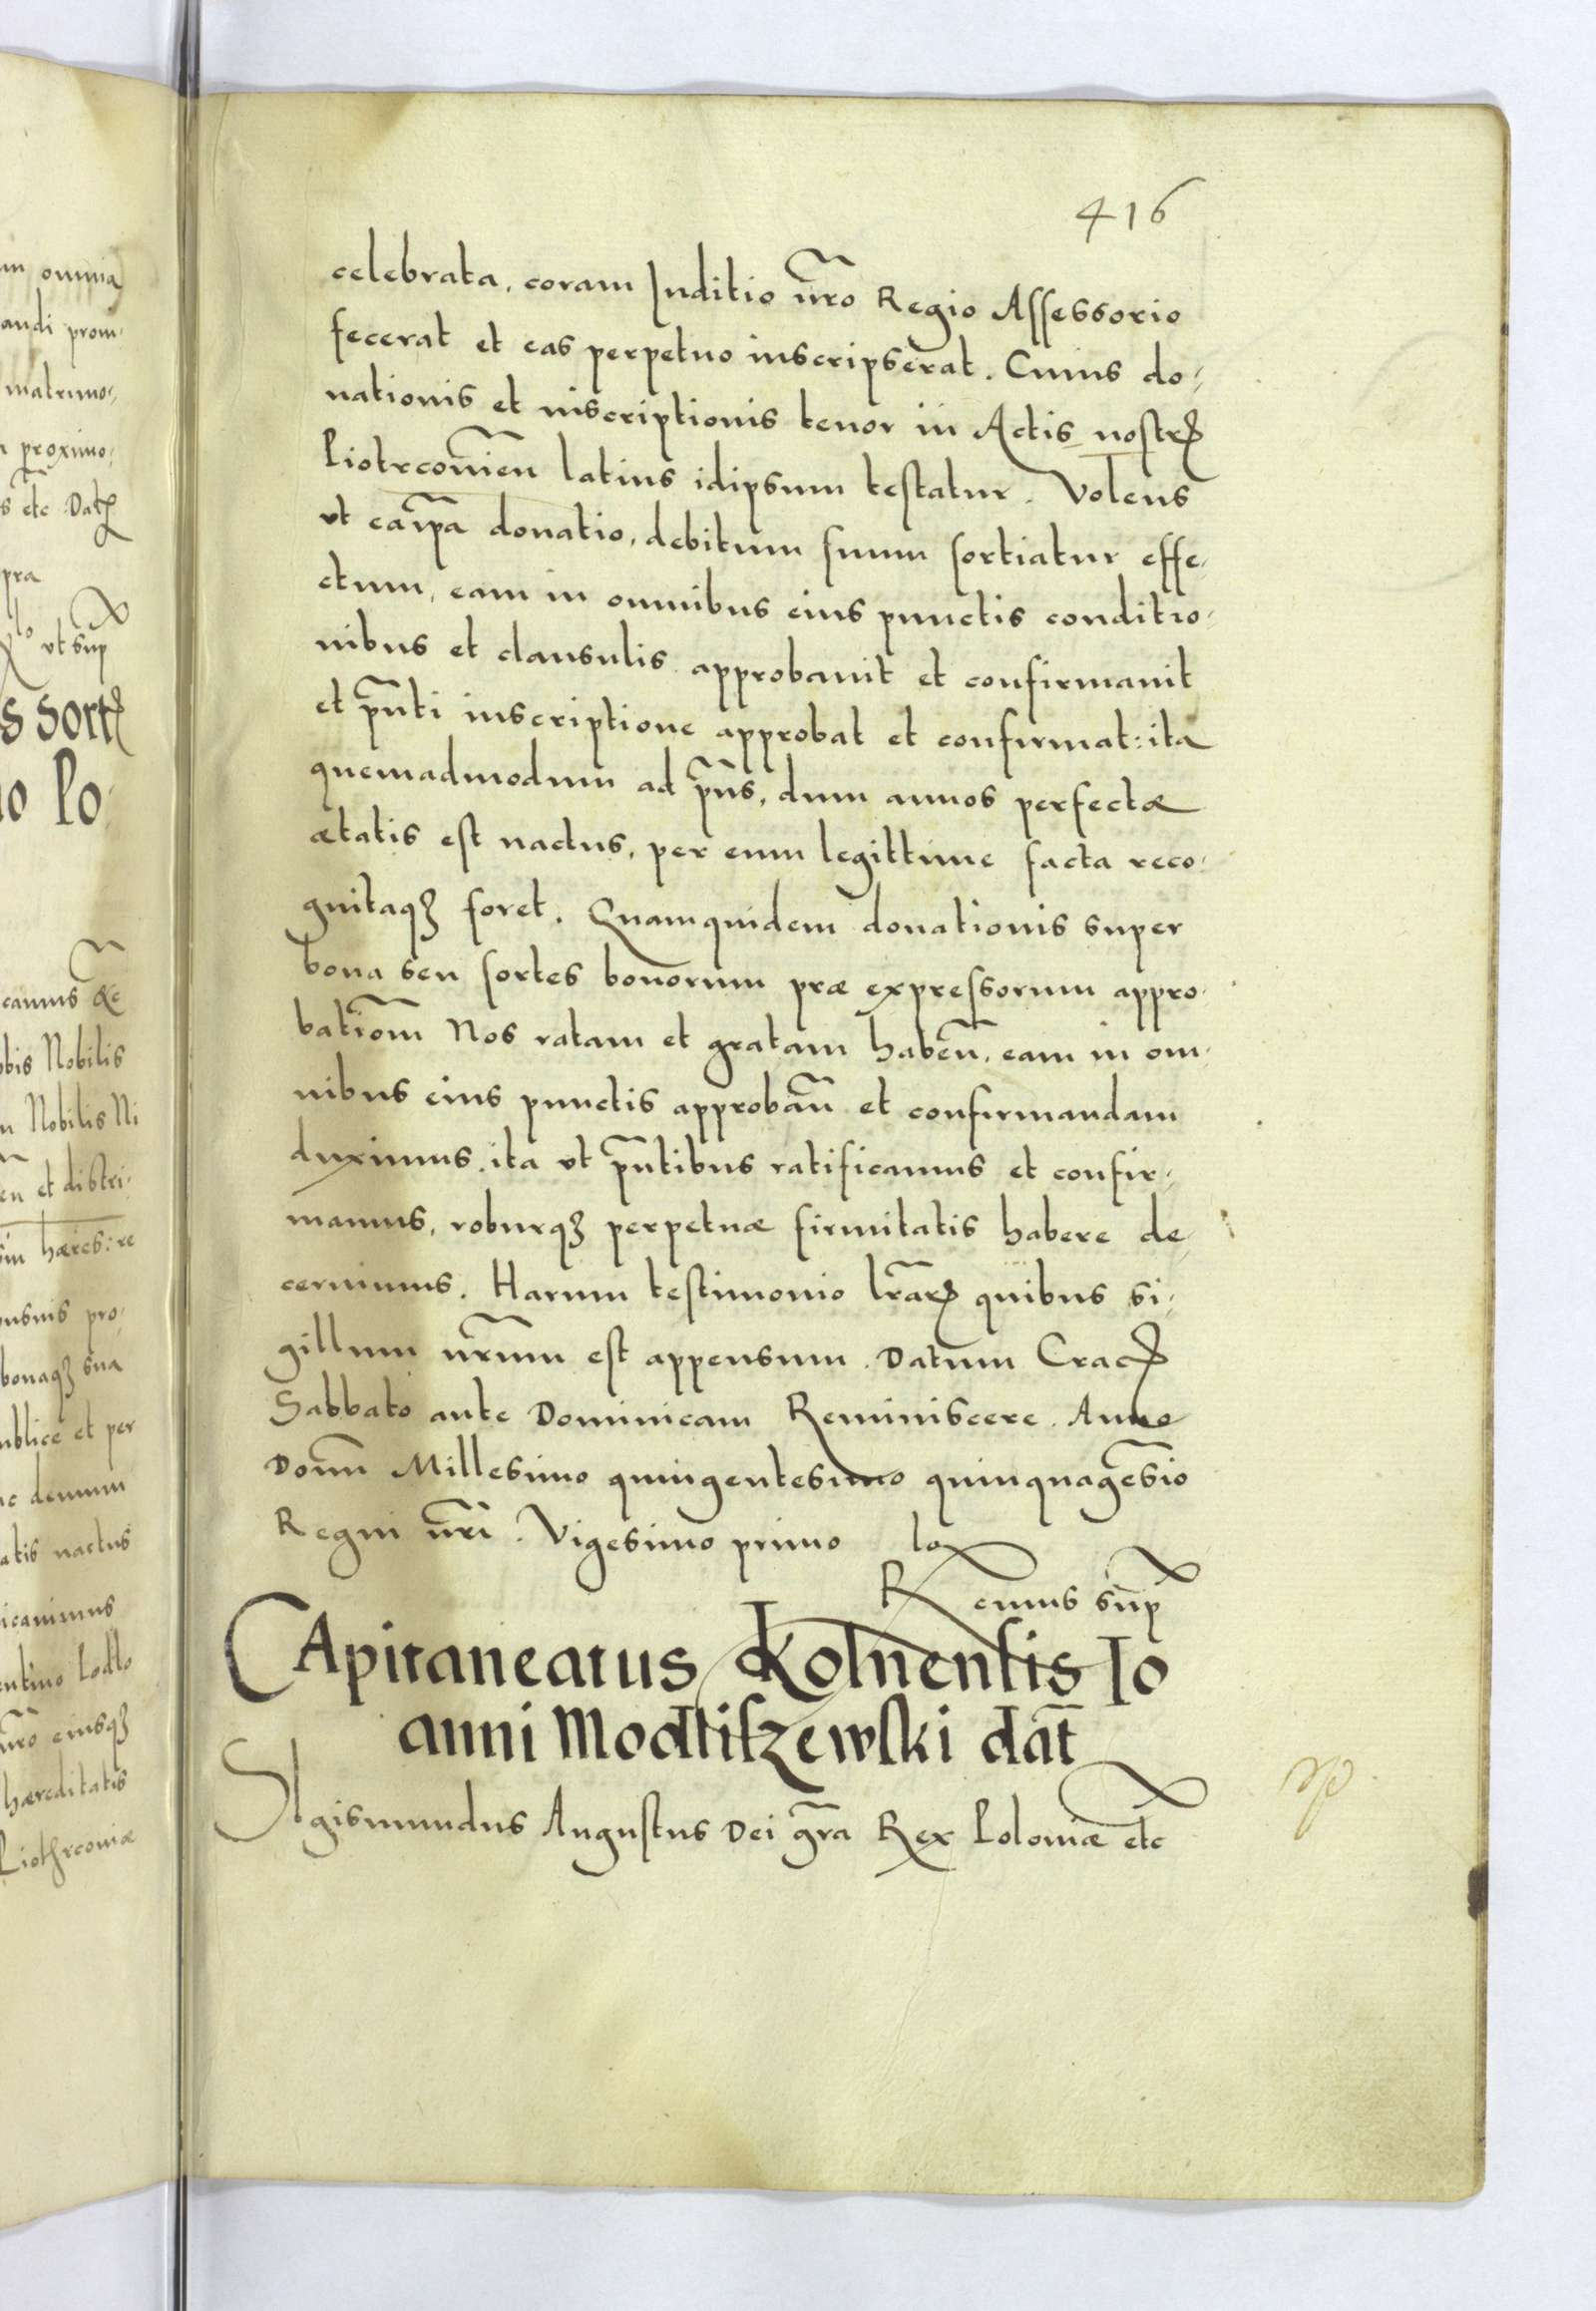 416
celebrata, coram Iuditio nr̃o Regio Assessorio
fecerat et eas perpetuo inscripserat. Cuius do-
nationis et inscriptionis tenor in Actis nostrꝭ
Piotrconień latius idipsum testatur. Volens
vt ea ip̃a donatio, debitum suum sortiatur effe-
ctum, eam in omnibus eius punctis conditio-
nibus et clausulis approbauit et confirmauit
et p̃nti inscriptione approbat et confirmat: ita
quemadmodum ad p̃ns, dum annos perfectæ
ætatis est nactus, per eum legittime facta reco-
gnitaqꝫ foret. Quamquidem donationis super
bona seu sortes bonorum præ expressorum appro-
batiom̃ Nos ratam et gratam habeñ, eam in om-
nibus eius punctis approbañ et confirmandam
duximus, ita vt p̃ntibus ratificamus et confir-
mamus, roburqꝫ perpetuæ firmitatis habere de-
cernimus. Harum testimonio lr̃arꝭ quibus si-
gillum nr̃um est appensum. Datum Cracꝭ
Sabbato ante Dominicam Reminiscere. Anno
Domñ Millesimo quingentesimo quinquagesĩo
Regni nr̃i. Vigesimo primo
R emus sup̃
CApitaneatus Kolnensis Io
anni Modliszewski dat̃
SIgismundus Augustus Dei gr̃a Rex Poloniæ etc